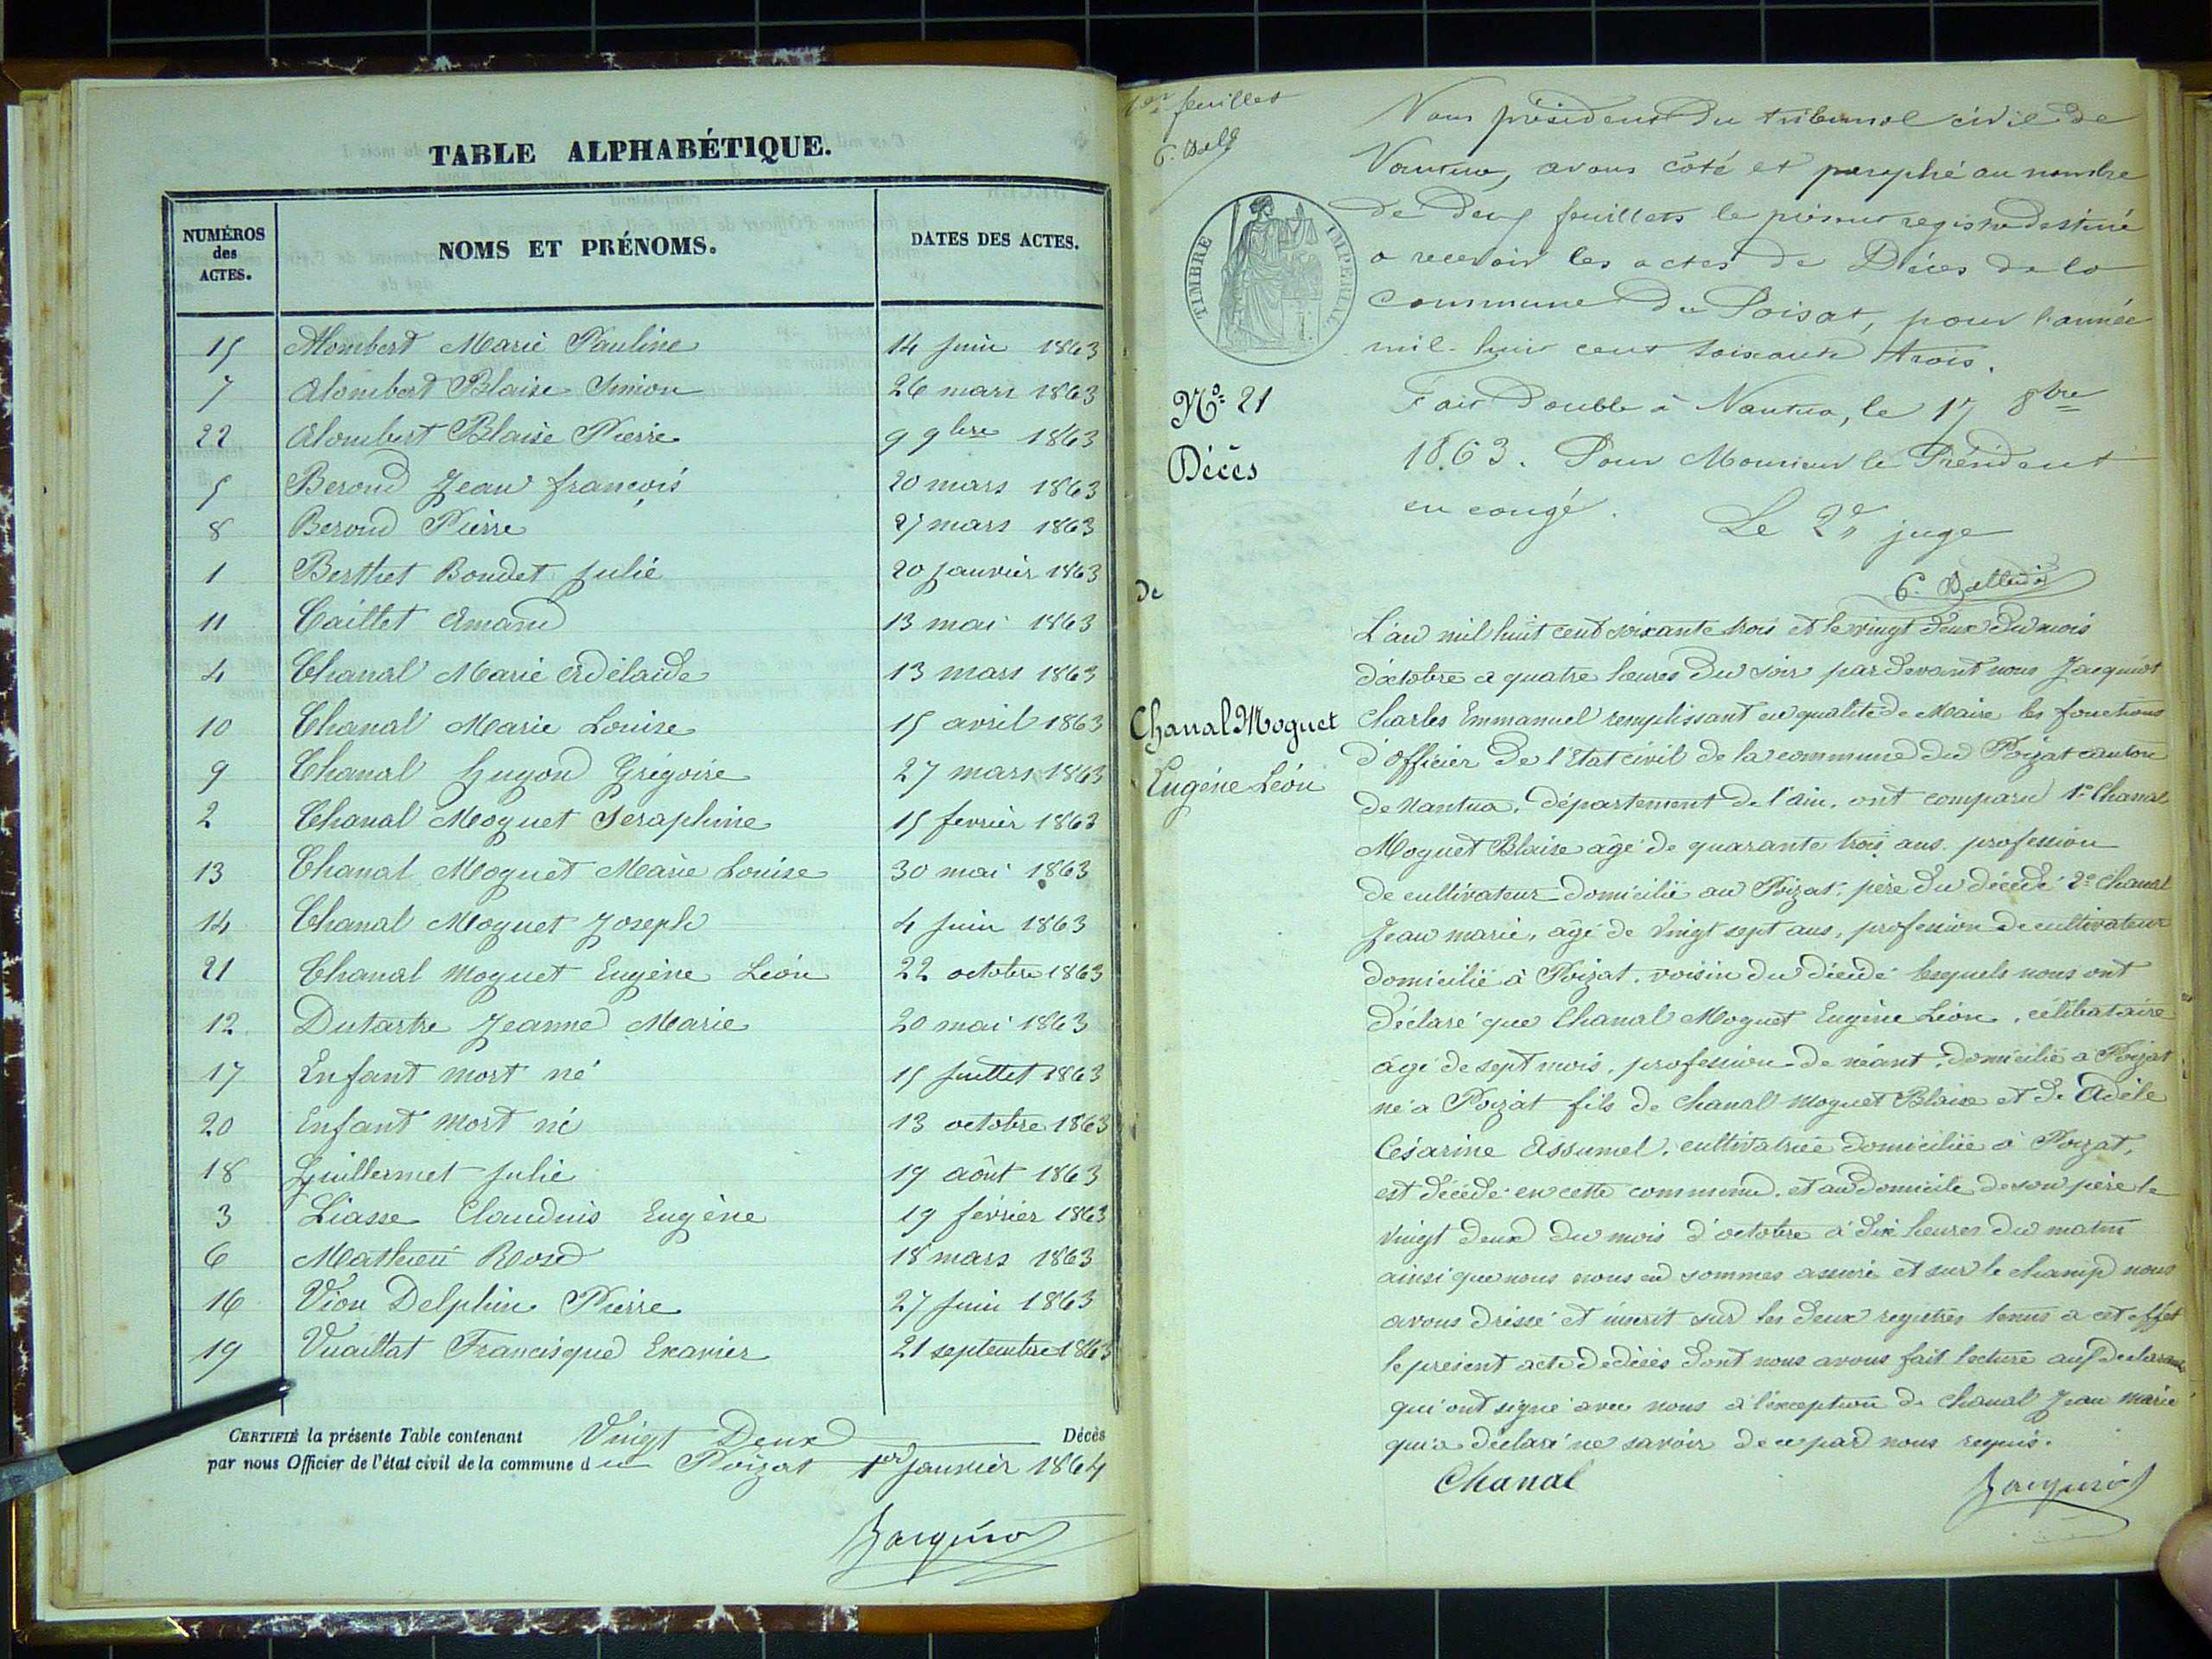 TABLE ALPHABÉTIQUE.
NUMÉROS des ACTES. NOMS ET PRÉNOMS. DATES DES ACTES.
15 Alombert Marie Pauline 14 juin 1863
7 Alombert Blaise Simion 26 mars 1863
22 Alombert Blaise Pierre 9 9bre 1863
5 Beroud Jean françois 20 mars 1863
8 Beroud Pierre 27 mars 1863
1 Berthet Bondet Julie 20 janvier 1863
11 Caillet Amand 13 mai 1863
4 Chanal Marie Adélaide 13 mars 1863
10 Chanal Marie Louise 15 avril 1863
9 Chanal Guyon Grégoire 27 mars 1863
2 Chanal Moguet Seraphine 15 fevrier 1863
13 Chanal Moguet Marie Louise 30 mai 1863
14 Chanal Moguet Joseph 4 juin 1863
21 Chanal Moguet Eugène Léon 22 octobre 1863
12 Dutartre Jeanne Marie 20 mai 1863
17 Enfant mort né 15 juillet 1863
20 Enfant mort né 13 octobre 1863
18 Guillermet Julie 19 août 1863
3 Liasse Claudius Eugène 19 février 1863
6 Mathieu Rose 18 mars 1863
16 Vion Delphin Pierre 27 juin 1863
19 Vuaillat Francisque Exavier 21 septembre 1863
CERTIFIÉ la présente Table contenant Vingt Deux Décès
par nous Officier de l'état civil de la commune du Poizat 1er janvier 1864
Jacquiot
1er feuillet
Nous président du tribunal civil de
Nantua, avons côté et paraphé au nombre
de deux feuillets le présent registre destiné
a recevoir les actes de Décès de la
commune du Poisat, pour l'année
mil-huit cent soixante trois.
TIMBRE IMPERIAL
Fait double à Nantua, le 17 8bre
1863. Pour Monsieur le Président
en congé.
Le 2e juge
No 21
Décès
de
Chanal Moguet
Eugène Léon
L'an mil huit cent soixante trois et le vingt deux du mois
d'octobre a quatre heures du soir par devant nous Jacquiot
Charles Emmanuel remplissant en qualité de Maire les fonctions
d'officier de l'Etat civil de la commune du Poizat canton
de Nantua, département de l'ain, ont comparu 1º Chanal
Moguet Blaise agé de quarante trois ans profession
de cultivateur domicilié au Poizat, père du décédé 2º Chanal
Jean marie, agé de vingt sept ans, profession de cultivateur
domicilié à Poizat, voisin du décédé lesquels nous ont
déclaré que Chanal Moguet Eugène Léon, célibataire
agé de sept mois, profession de néant, domicilié a Poizat
né a Poizat fils de Chanal Moguet Blaise et de Adèle
Césarine Assumel, cultivatrice domiciliée à Poizat,
est décédé en cette commune, et au domicile de son père le
vingt deux du mois d'octobre à dix heures du matin
ainsi que nous nous en sommes assuré et sur le champ nous
avons dressé et inscrit sur les deux registres tenus a cet effet
le présent acte de décès dont nous avons fait lecture aux déclarants
qui ont signé avec nous à l'exception de Chanal Jean Marie
qui a déclaré ne savoir de ce par nous requis.
Chanal Jacquiot